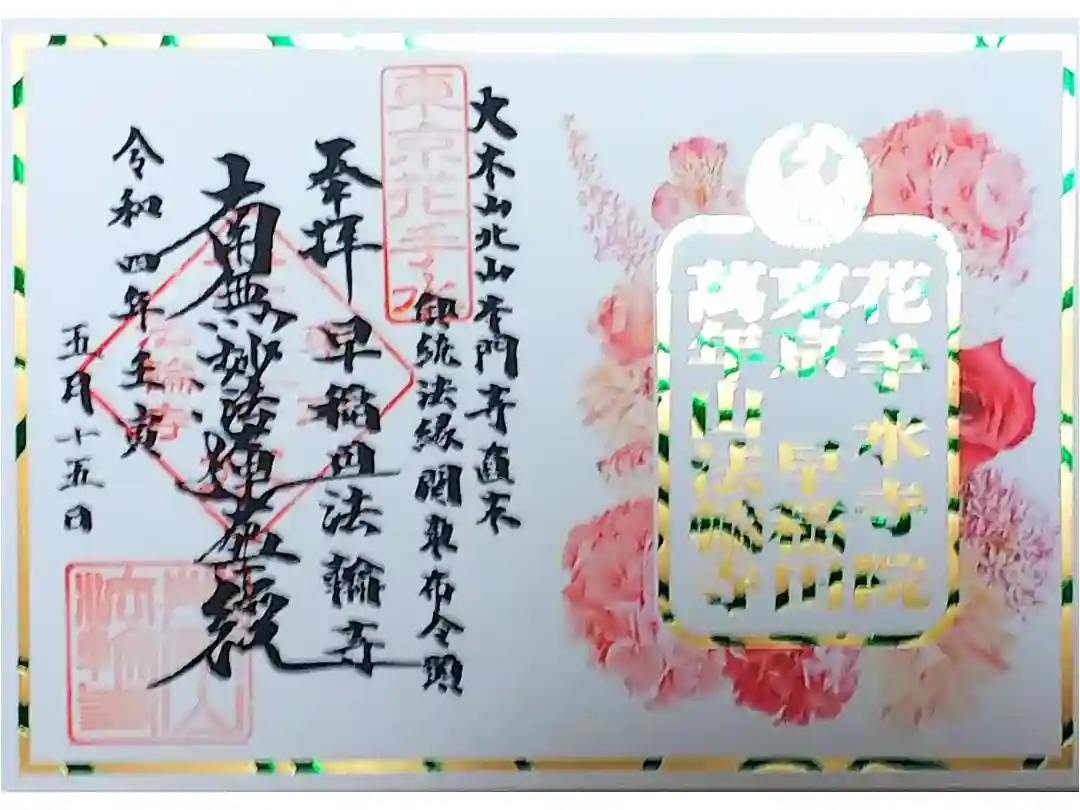 花手水寺院
東京 早稲田
萬年山法輪寺
大本山北山本門寺直末
御統法縁関東布令頭
東京花手水
奉拝 早稲田法輪寺
南無妙法蓮華経
令和四年壬寅
五月十五日